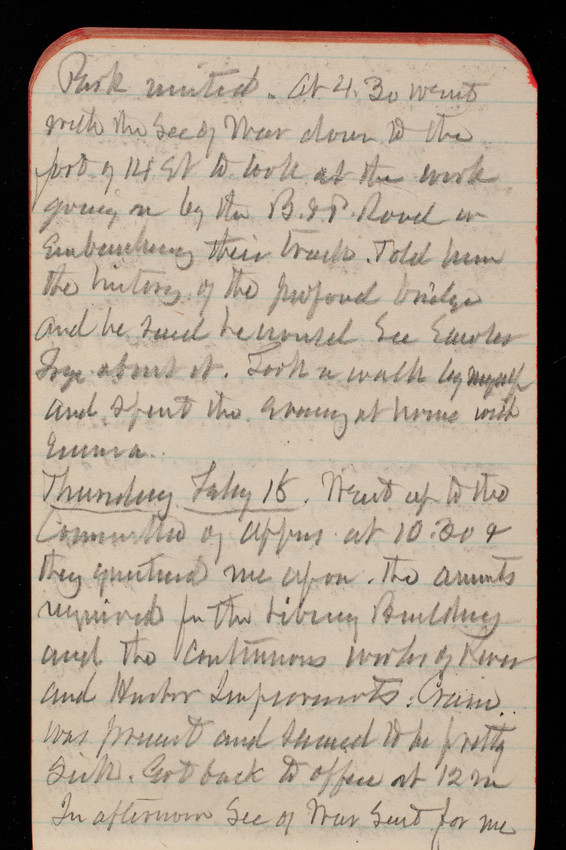 Park united. At 4.30 went
with the Sec of War down to the
foot of 14 St to look at the work
going on by the B.&P. Road in
Embanking their track. Told him
the history of the proposed bridge
and he said he would See
about it. Took a walk by myself
and spent the Evening at home with
Emma.
Thursday July 18. Went up to the
Committee of Appns at 10.30 &
they questioned me upon the amounts
required for the Library Building
and the Continuous works of River
and Harbor Improvements. Crain
was present and seemed to be pretty
Sick. Got back to office at 12 m
In afternoon Sec of War sent for me